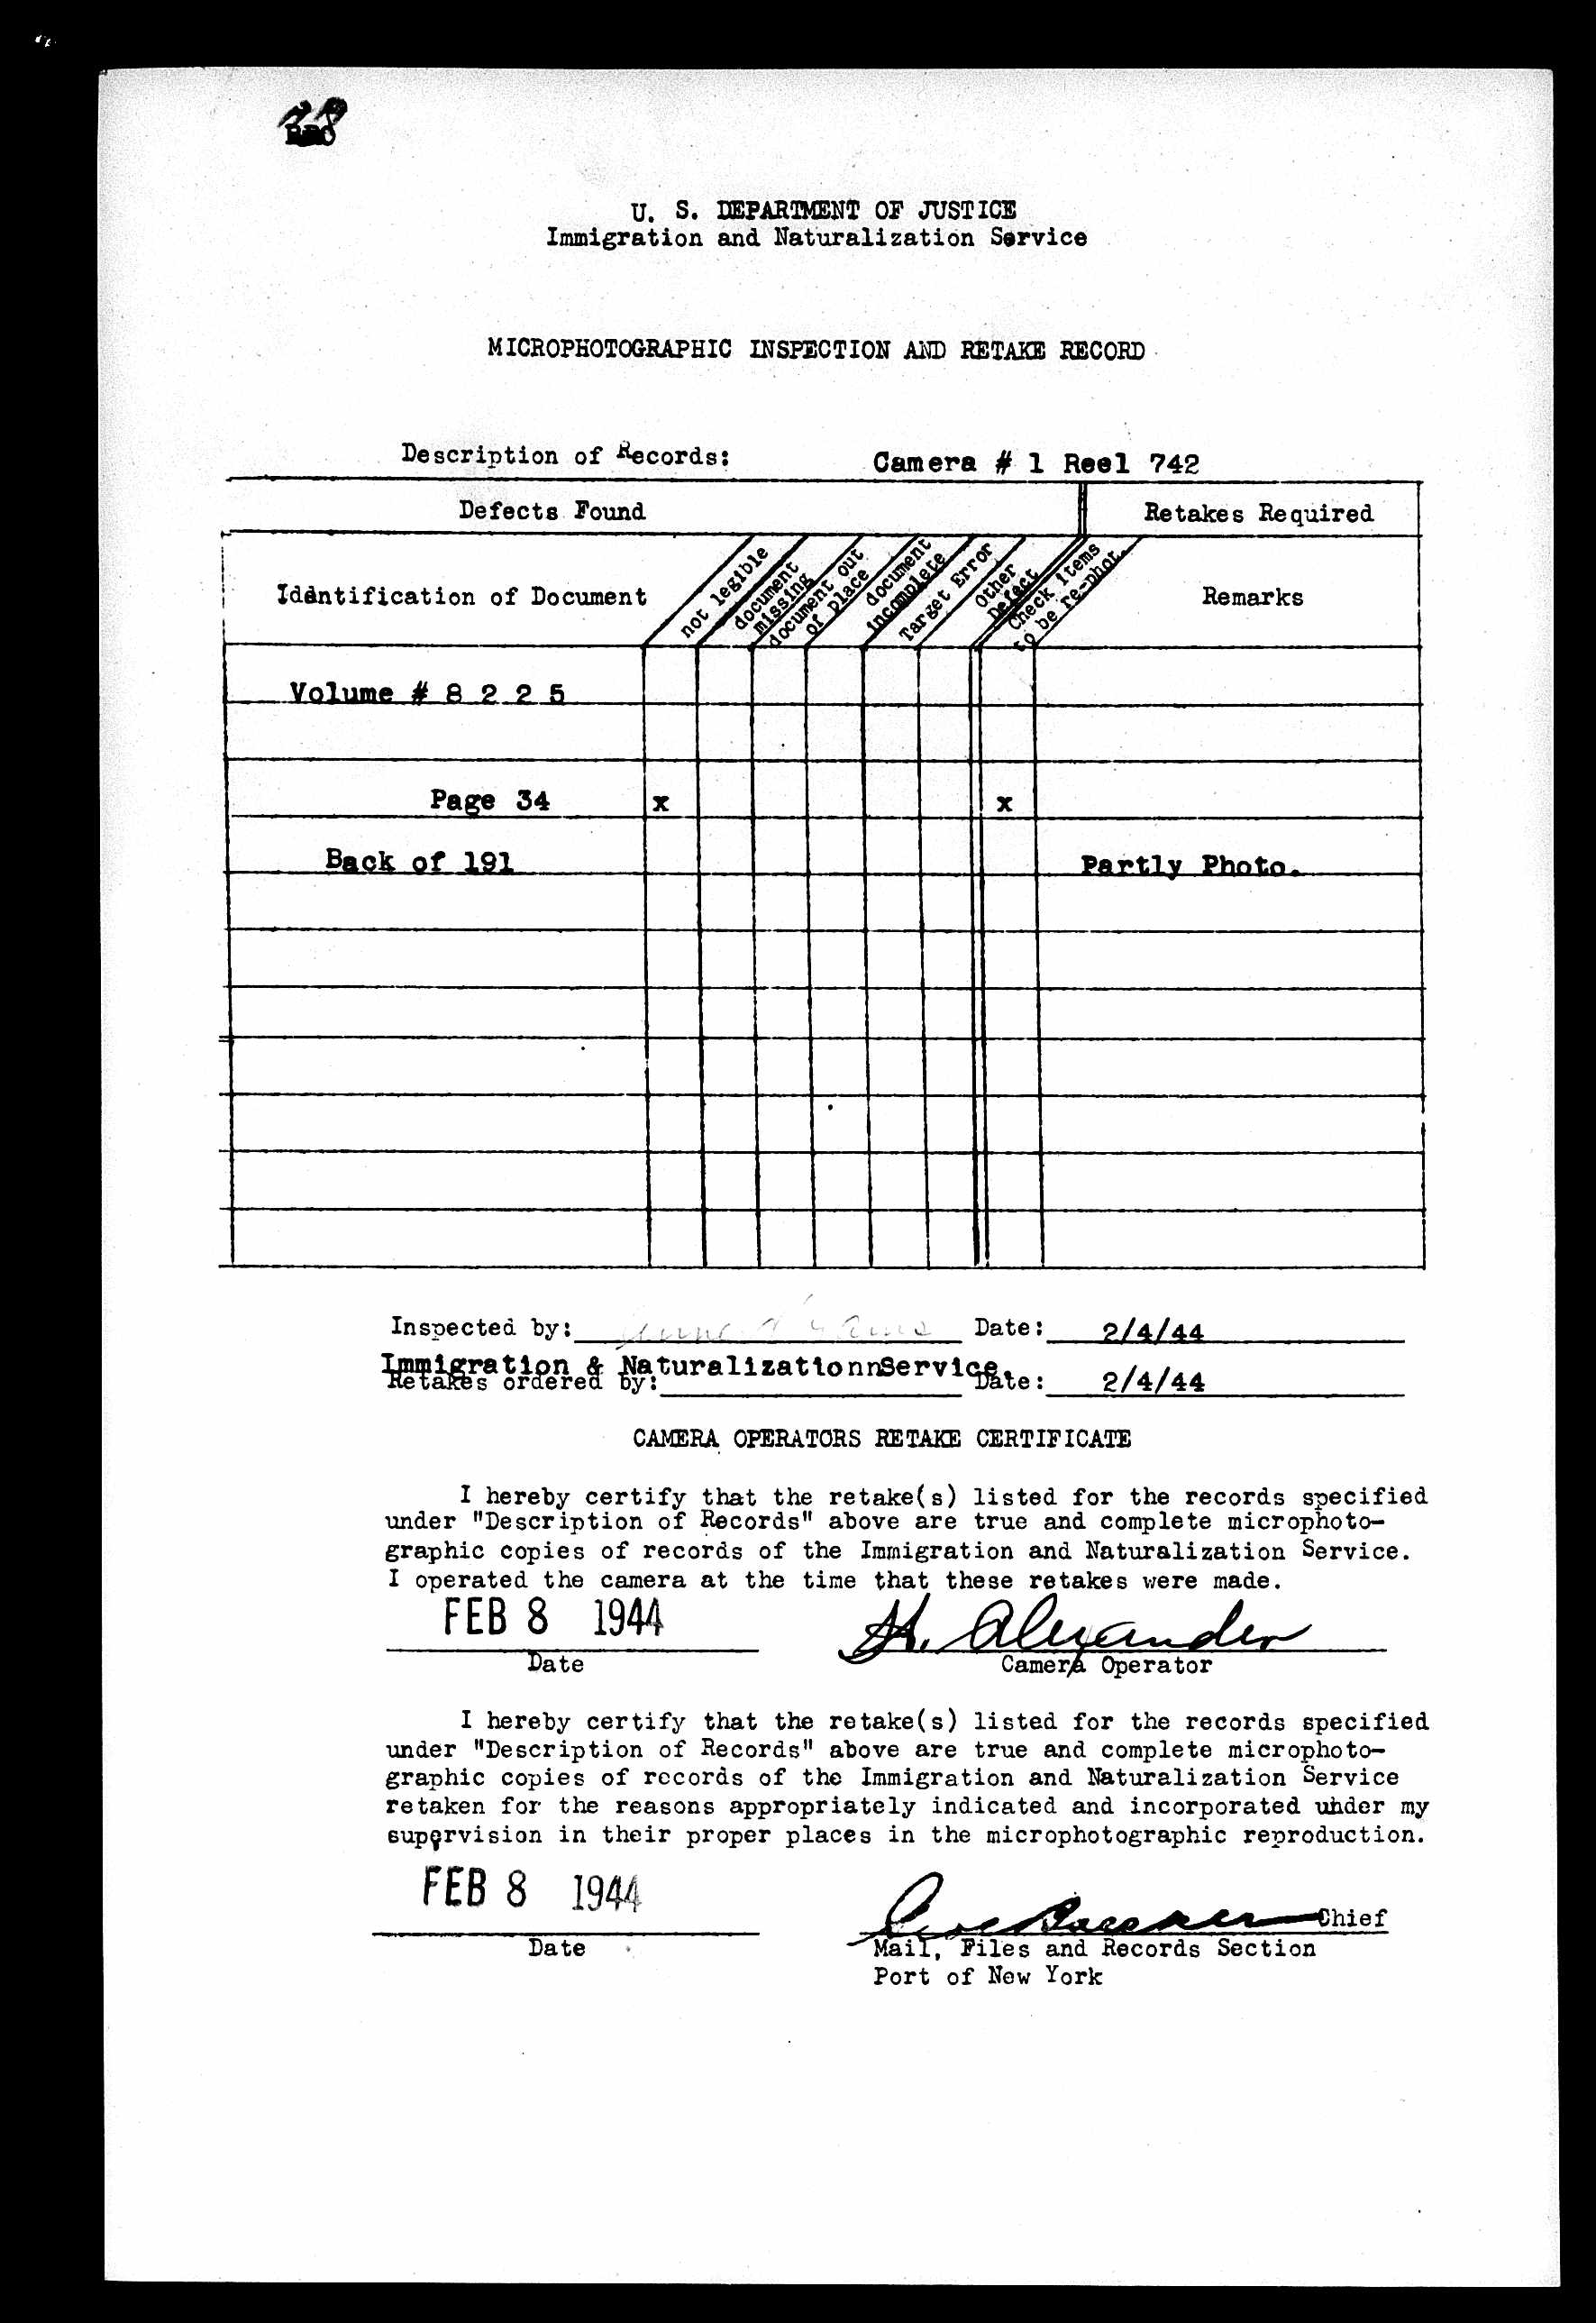 U. S. DEPARTMENT OF JUSTICE
Immigration and Naturalization Service
MICROPHOTOGRAPHIC INSPECTION AND RETAKE RECORD
Description of Records: Camera # 1 Reel 742
Defects Found Retakes Required
Identification of Document
not legible
document
missing
document out
of place
document
incomplete
Target Error
Other
Defect
Check items
to be re-phot.
Remarks
Volume # 8 2 2 5
Page 34 x x
Back of 191 Partly Photo.
Inspected by: Date: 2/4/44
Immigration & NaturalizationnService.
Retakes ordered by: Date: 2/4/44
CAMERA OPERATORS RETAKE CERTIFICATE
I hereby certify that the retake(s) listed for the records specified
under "Description of Records" above are true and complete microphoto-
graphic copies of records of the Immigration and Naturalization Service.
I operated the camera at the time that these retakes were made.
FEB 8 1944 H. Alexander
Date Camera Operator
I hereby certify that the retake(s) listed for the records specified
under "Description of Records" above are true and complete microphoto-
graphic copies of records of the Immigration and Naturalization Service
retaken for the reasons appropriately indicated and incorporated under my
supervision in their proper places in the microphotographic reproduction.
FEB 8 1944 Chief
Date Mail, Files and Records Section
Port of New York